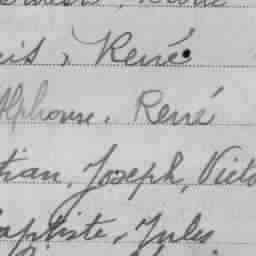 eis, René
Alphonse, René
tian, Joseph, Victo
aptiste, Jules